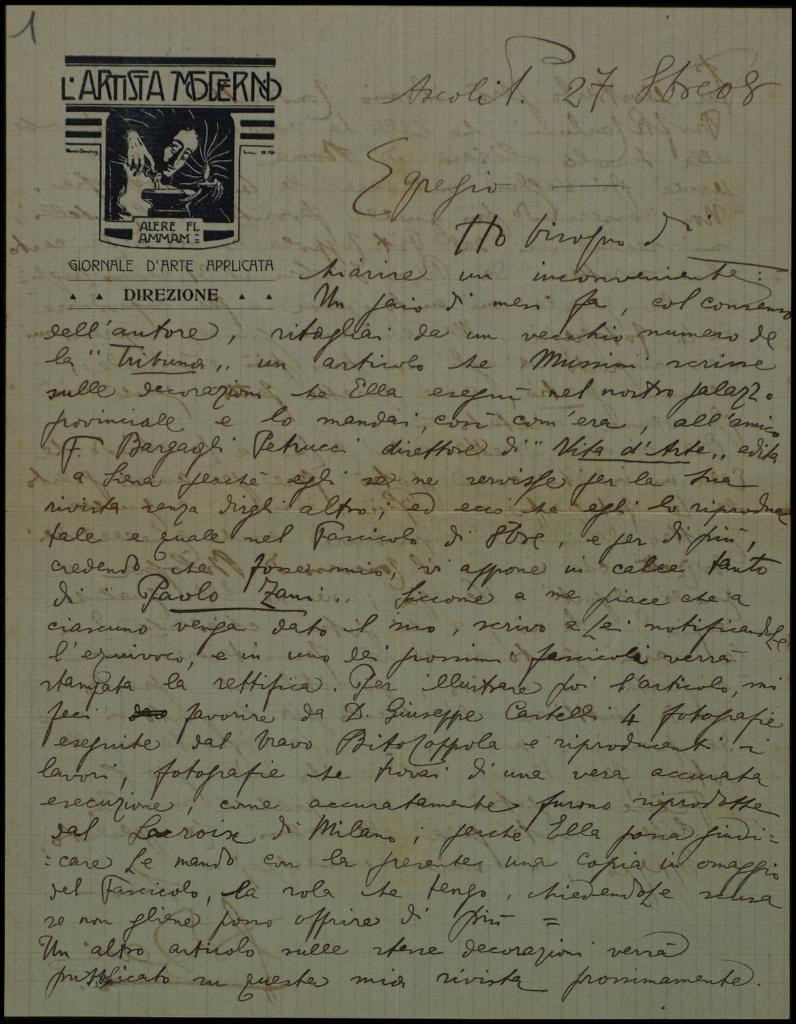 1
L'ARTISTA MODERNO
ALERE FL
AMMAM
GIORNALE D'ARTE APPLICATA
DIREZIONE
Ascoli P. 27 8bre 08
Egregio
Ho bisogno di
chiarire un inconveniente:
Un paio di mesi fa, col consenso
dell'autore, ritagliai da un vecchio numero de
la "Tribuna" un articolo che Mussini scrisse
sulle decorazioni che Ella eseguì nel nostro palazzo
provinciale e lo mandai, così com'era, all'amico
F. Bargagli Petrucci direttore di "Vita d'Arte" edita
a Siena perchè egli se ne servisse per la sua
rivista senza dirgli altro; ed ecco che egli lo riproduce
tale e quale nel Fascicolo di 8bre, e per di più,
credendo che fosse mio, vi appone in calce tanto
di "Paolo Zani". Siccome a me piace che a
ciascuno venga dato il suo, scrivo a Lei notificandole
l'equivoco, e in uno dei prossimi fascicoli verrà
stampata la rettifica. Per illustrare poi l'articolo, mi
feci favorire da D. Giuseppe Castelli 4 fotografie
eseguite dal bravo e riproducenti i
lavori, fotografie che trovai di una vera accurata
esecuzione, come accuratamente furono riprodotte
dal Lacroix di Milano; perchè Ella possa giudi=
=care Le mando con la presente una copia in omaggio
del Fascicolo, la sola che tengo, chiedendole scusa
se non gliene posso offrire di più =
Un altro articolo sulle stesse decorazioni verrà
pubblicato su questa mia rivista prossimamente.